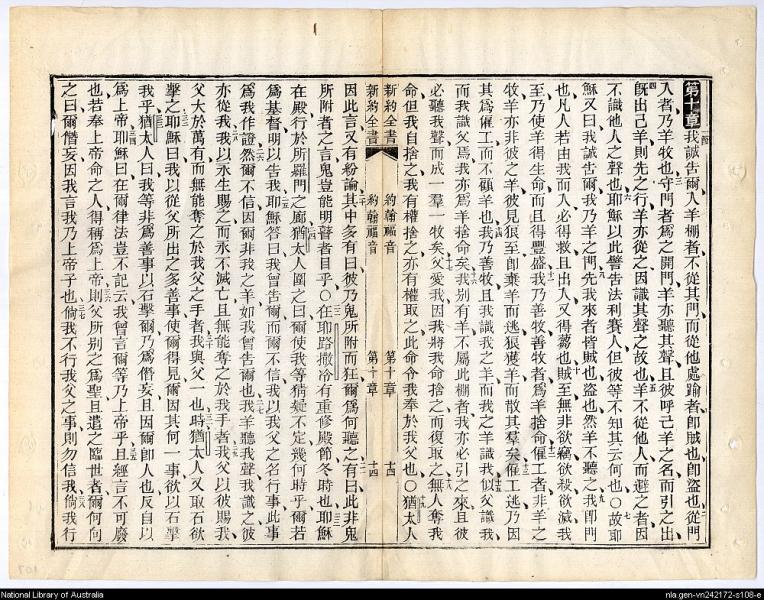 第十章我誠告爾人羊棚者不從其門而從他處踰者卽賊也卽盜也從門
入者乃羊牧也守門者爲之開門羊亦聽其聲且彼呼己羊之名而引之出
旣出己羊則先之行羊亦從之因識其聲之故也羊不從他人而避之者因
不識他人之聲也耶穌以此譬告法利賽人但彼等不知其云何也○故耶
穌又曰我誠告爾我乃羊之門先我來者皆賊也盜也然羊不聽之我卽門
也凡人若由我而入必得救且出入又得蒭也賊至無非欲竊欲殺欲滅我
至乃使羊得生命而且得豐盛我乃善牧善牧者爲羊捨命僱工者非羊之
牧羊亦非彼之羊彼見狼至卽棄羊而逃狼獲羊而散其羣矣僱工逃乃因
其爲僱工而不顧羊也我乃善牧且我識我之羊而我之羊識我似父識我
而我識父焉我亦爲羊捨命矣我別有羊不屬此棚者我亦必引之來且彼
必聽我聲而成一羣一牧矣父愛我因我將我命捨之而復取之無人奪我
命但我自捨之我有權捨之亦有權取之此命令我奉於我父也○猶太人
新約全書 約翰福音 第十章 十四
新約全書 約翰福音 第十章 十四
因此言又有紛論其中多有曰彼乃鬼所附而狂爾爲何聽之有曰此非鬼
所附者之言鬼豈能明瞽者目乎○在耶路撒冷有重修殿節冬時也耶穌
在殿行於所羅門之廊猶太人圍之曰爾使我等猜疑不定幾何時乎爾若
爲基督明以告我耶穌答曰我曾告爾而爾不信我以我父之名行事此事
爲我作證然爾不信因爾非我之羊如我曾告爾也我羊聽我聲我識之彼
亦從我我以永生賜之而永不滅亡且無能奪之於我手者我父以彼賜我
父大於萬有而無能奪之於我父之手者我與父一也時猶太人又取石欲
擊之耶穌曰我以從父所出之多善事使爾得見爾因其何一事欲以石擊
我乎猶太人曰我等非爲善事以石擊爾乃爲僭妄且因爾卽人也反自以
爲上帝耶穌曰在爾律法豈不記云我曾言爾等乃上帝乎且經言不可廢
也若奉上帝命之人得稱爲上帝則父所別之爲聖且遣之臨世者爾何向
之曰爾僭妄因我言我乃上帝子也倘我不行我父之事則勿信我倘我行
National Library of Australia
nla.gen-vn242172-s108-e